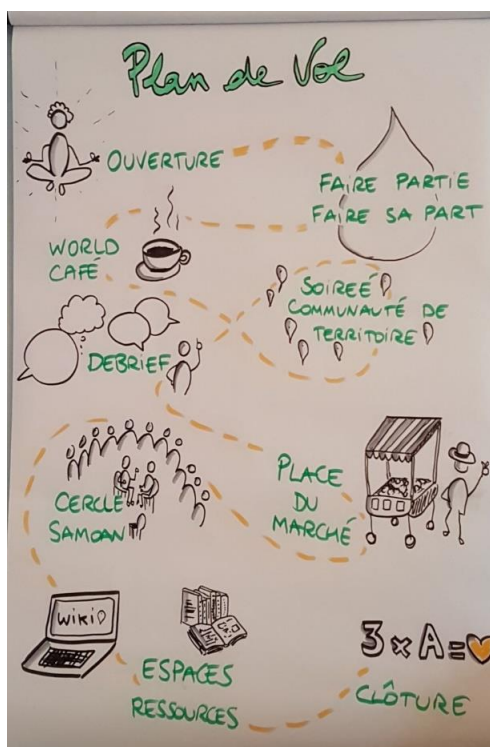 Plan de Vol
OUVERTURE
FAIRE PARTIE
FAIRE SA PART
WORLD
CAFÉ
SOIREÉ
COMMUNAUTÉ DE
TERRITOIRE
DEBRIEF
PLACE
DU
MARCHÉ
CERCLE
SAMOAN
WIKI
ESPACES
RESSOURCES
3 x A =
CLÔTURE